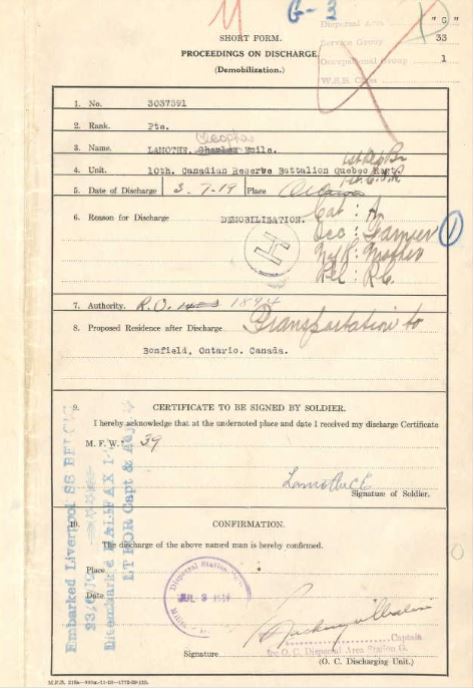 G-2
Dispersal Area "G"
Service Group 33
Occupational Group 1
W.S.B. Class
SHORT FORM.
PROCEEDINGS ON DISCHARGE.
(Demobilization.)
1. No. 3037391
2. Rank. Pte.
3. Name. LAMOTHE, Charles Emile.
4. Unit. 10th. Canadian Reserve Battalion Quebec Regt.
5. Date of Discharge 3-7-19 Place Ottawa
6. Reason for Discharge DEMOBILISATION.
Cat: A
Occ: Farmer
N/K: Mother
Rel: R.C.
H
7. Authority. R.O. 1894
8. Proposed Residence after Discharge Transportation to
Bonfield, Ontario. Canada.
9. CERTIFICATE TO BE SIGNED BY SOLDIER.
I hereby acknowledge that at the undernoted place and date I received my discharge Certificate
M. F. W. 39
Signature of Soldier.
10. CONFIRMATION.
The discharge of the above named man is hereby confirmed.
Place
Date
Dispersal Station
JUL 3 1919
Signature
Captain
for O. C. Dispersal Area Station G.
(O. C. Discharging Unit.)
Embarked Liverpool SS
HALIFAX
Capt & Adj